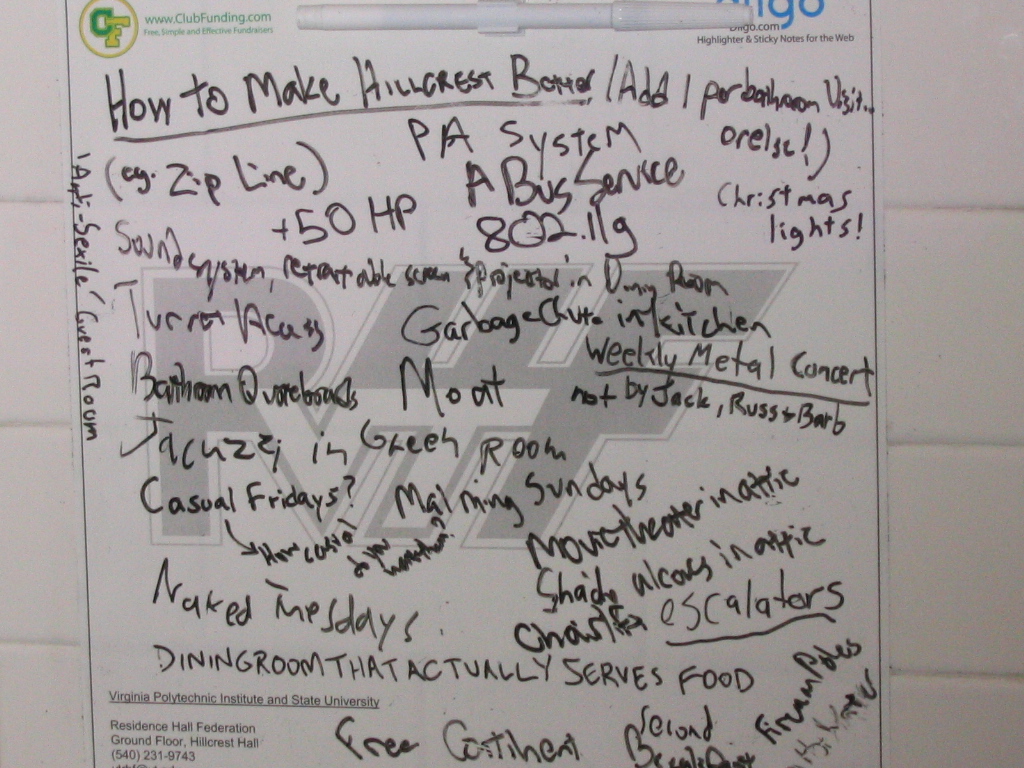 www.ClubFunding.com
Free, Simple and Effective Fundraisers
Diigo
Diigo.com
Highlighter & Sticky Notes for the Web
How to Make HILLCREST Better (Add 1 per bathroom Visit...
or else!)
(eg. Zip Line)
PA System
A Bus Service
Christmas
lights!
+50 HP
802.11g
Sound system, retractable screen & Projector in Dining Room
Turret Access
Garbage Chute in kitchen
Weekly Metal Concert
not by Jack, Russ + Barb
Bathroom Quoteboards
Moat
Jacuzzi in Green Room
Casual Fridays?
How casual
do you
Sundays
Movie theater in attic
alcoves in attic
Naked Tuesdays
escalators
DINING ROOM THAT ACTUALLY SERVES FOOD
Fireman Poles
Virginia Polytechnic Institute and State University
Residence Hall Federation
Ground Floor, Hillcrest Hall
(540) 231-9743
Free
Second
Breakfast
'Anti-Sexile' Guest Room
RHF